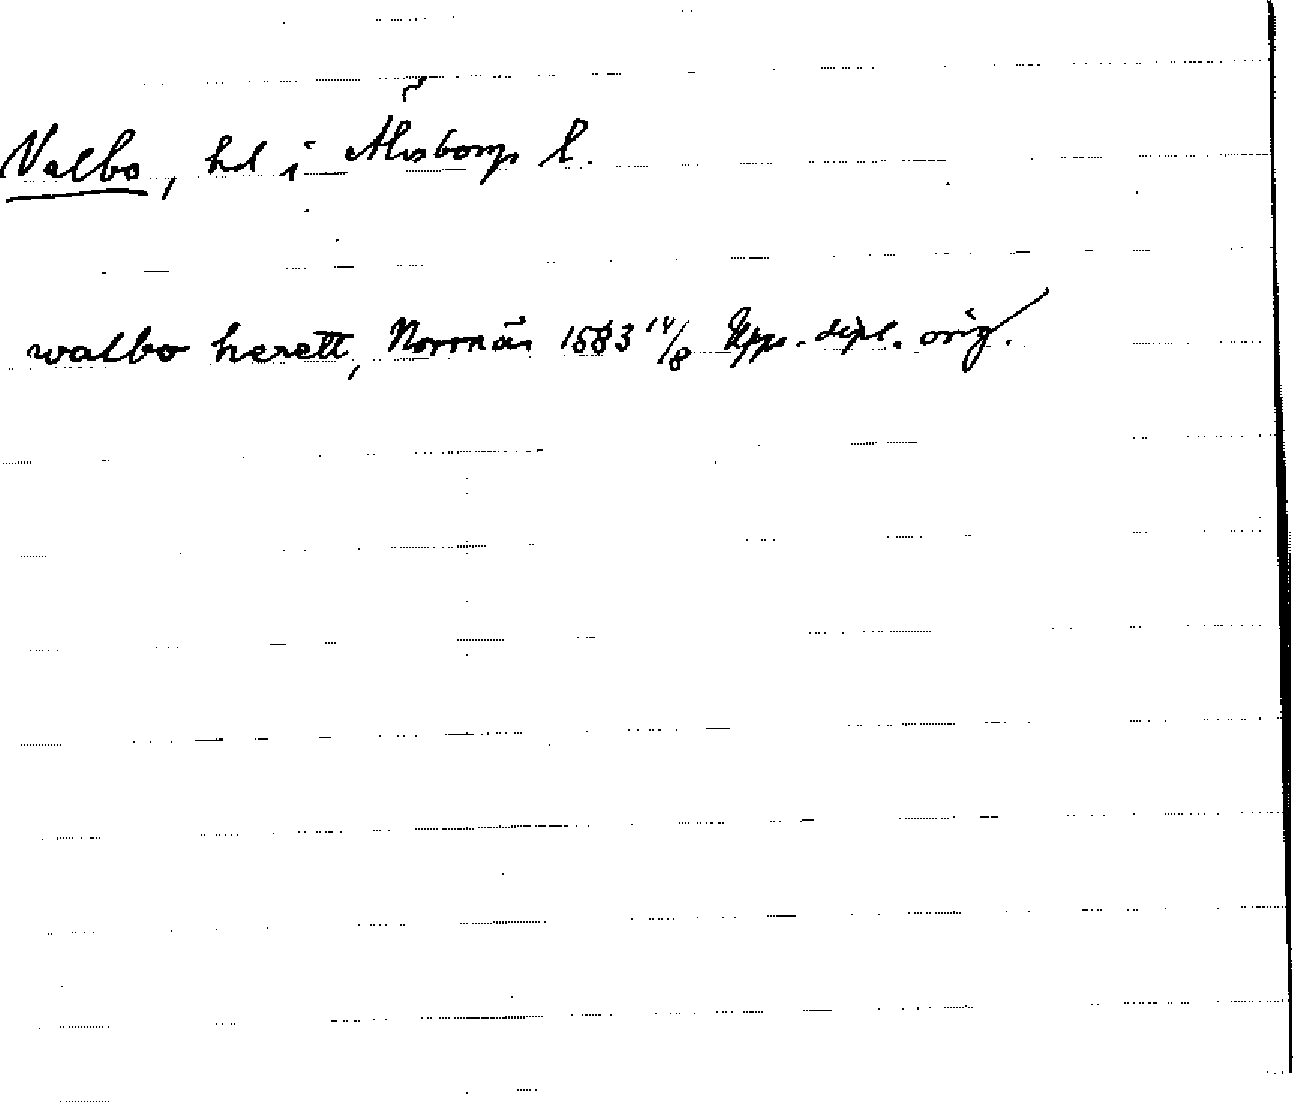 Valbo, hd i Älvsborgs l.
walbo herett, Norrnäs 1583 14/8 Upps. dipl. orig.